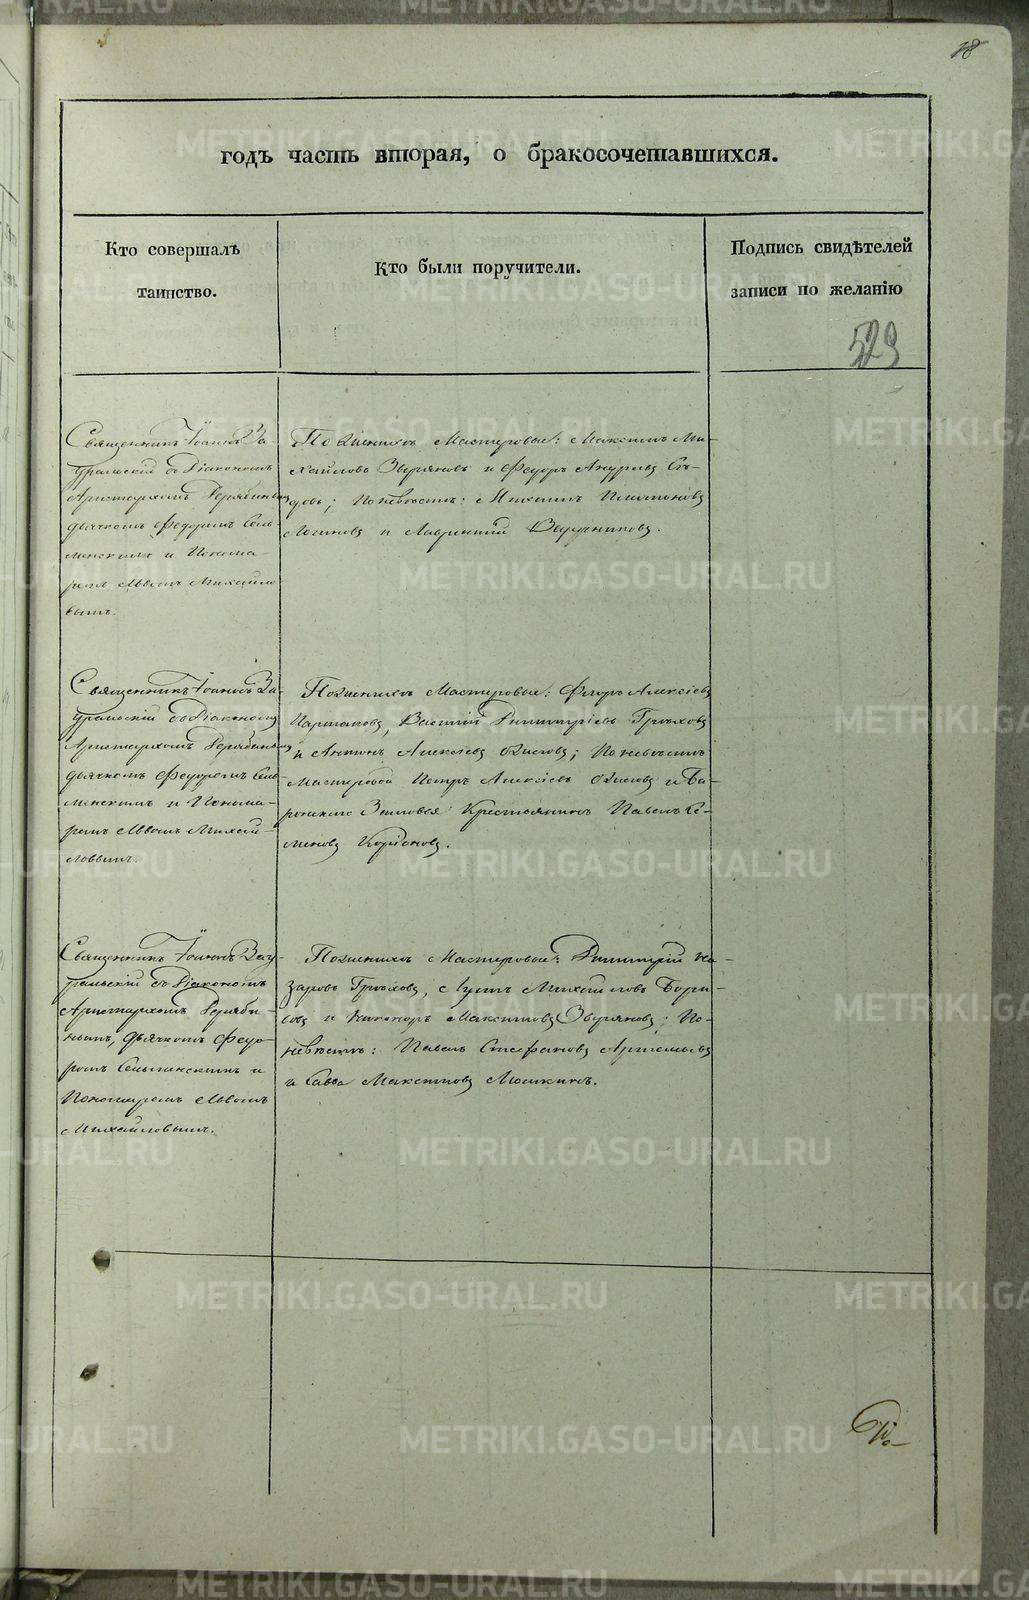 18
годъ часть вторая, о бракосочетавшихся.
Кто совершалъ
таинство.
Кто были поручители.
Подпись свидѣтелей
записи по желанію
529
Священникъ Іоаннъ За-
уральскій съ Діакономъ
Аристархомъ Дерябинымъ
дьячкомъ Федоромъ Сель-
менскимъ и Понома-
ремъ Львомъ Михайло
вымъ.
По женихѣ Мастеровые: Максимъ Ми-
хайловъ Звѣряковъ и Федоръ
довъ; по невѣстѣ: Никита Платоновъ
Логиновъ и Лаврентий
Священникъ Іоаннъ За-
уральскій съ Діакономъ
Аристархомъ Дерябинымъ
дьячкомъ Федоромъ Сель-
менскимъ и Понома-
ремъ Львомъ Михай-
ловымъ.
По женихѣ Мастеровые: Флоръ Алексѣевъ
Василій Димитріевъ Грѣховъ
и Антонъ Алексѣевъ по невѣстѣ
Мастеровой Петръ Алексѣевъ и Ба-
ронскихъ Крестьянинъ Павелъ Се-
меновъ
Священникъ Іоаннъ Зау-
ральскій съ Діакономъ
Аристархомъ Деряби-
нымъ, дьячкомъ Федо-
ромъ Сельменскимъ и
Пономаремъ Львомъ
Михайловымъ.
По женихѣ Мастеровые: Димитрій На-
заровъ Грѣховъ, Михайловъ Бори-
совъ и Никаноръ Максимовъ Звѣряковъ; по
невѣстѣ: Павелъ Стефановъ Артемьевъ
и Савва Максимовъ
METRIKI.GASO-URAL.RU